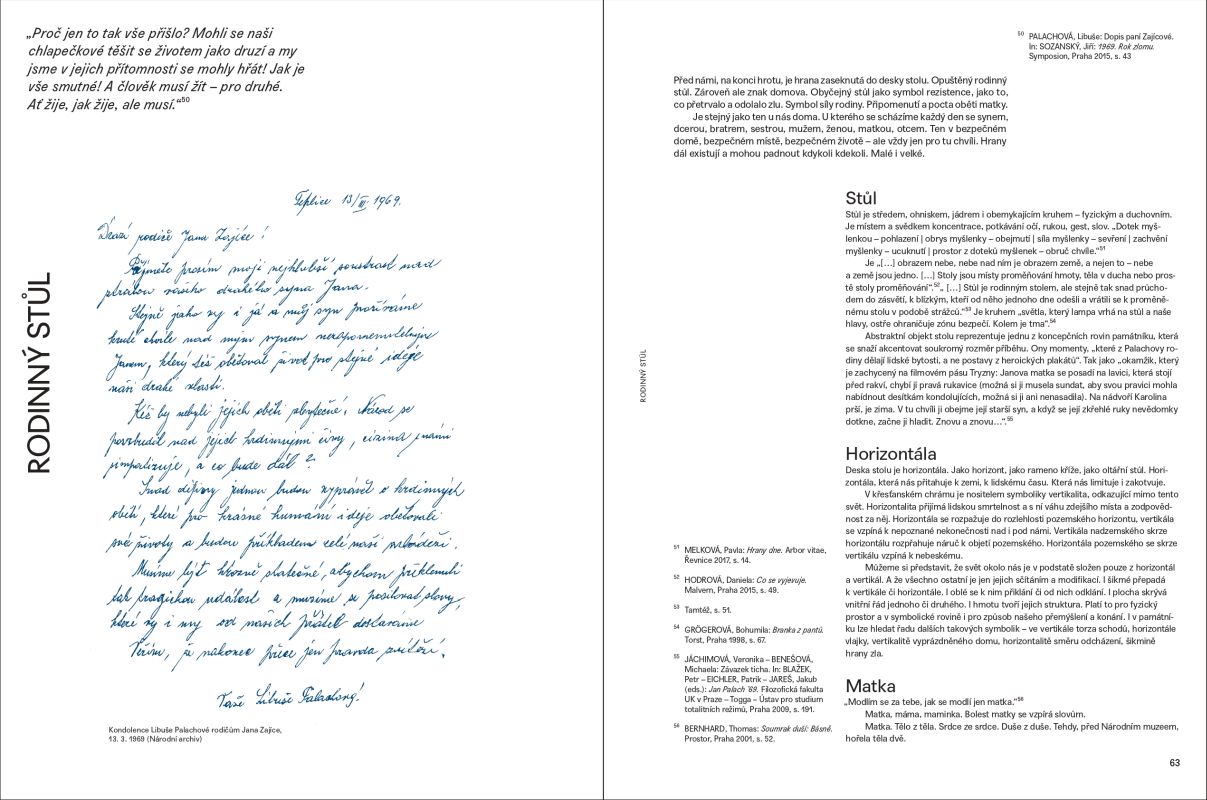 „Proč jen to tak vše přišlo? Mohli se naši
chlapečkové těšit se životem jako druzí a my
jsme v jejich přítomnosti se mohly hřát! Jak je
vše smutné! A člověk musí žít – pro druhé.
Ať žije, jak žije, ale musí.“50
RODINNÝ STŮL
Teplice 13/III. 1969.
Drazí rodiče Jana Zajíce!
Přijměte prosím moji nejhlubší soustrast nad
ztrátou vašeho drahého syna Jana.
Stejně jako vy i já a můj syn prožíváme
kruté chvíle nad mým synem nezapomenutelným
Janem, který též obětoval život pro stejné ideje
naší drahé vlasti.
Kéž by nebyli jejich oběti zbytečné. Národ se
povzbudil nad jejich hrdinnými činy, cizina s námi
sympatizuje, a co bude dál?
Snad dějiny jednou budou vyprávět o hrdinných
obětí, které pro krásné humánní ideje obětovali
své životy a budou příkladem celé naší mládeži.
Musíme být hrozně statečné, abychom překlenuli
tak tragickou událost a musíme se posilovat slovy,
které vy i my od našich přátel dostáváme
Věřím, že nakonec přece jen pravda zvítězí.
Vaše Libuše Palachová!
Kondolence Libuše Palachové rodičům Jana Zajíce,
13. 3. 1969 (Národní archiv)
50 PALACHOVÁ, Libuše: Dopis paní Zajícové.
In: SOZANSKÝ, Jiří: 1969. Rok zlomu.
Symposion, Praha 2015, s. 43
Před námi, na konci hrotu, je hrana zaseknutá do desky stolu. Opuštěný rodinný
stůl. Zároveň ale znak domova. Obyčejný stůl jako symbol rezistence, jako to,
co přetrvalo a odolalo zlu. Symbol síly rodiny. Připomenutí a pocta oběti matky.
Je stejný jako ten u nás doma. U kterého se scházíme každý den se synem,
dcerou, bratrem, sestrou, mužem, ženou, matkou, otcem. Ten v bezpečném
domě, bezpečném místě, bezpečném životě – ale vždy jen pro tu chvíli. Hrany
dál existují a mohou padnout kdykoli kdekoli. Malé i velké.
RODINNÝ STŮL
Stůl
Stůl je středem, ohniskem, jádrem i obemykajícím kruhem – fyzickým a duchovním.
Je místem a svědkem koncentrace, potkávání očí, rukou, gest, slov. „Dotek myš-
lenkou – pohlazení | obrys myšlenky – obejmutí | síla myšlenky – sevření | zachvění
myšlenky – ucuknutí | prostor z doteků myšlenek – obruč chvíle.“51
Je „[…] obrazem nebe, nebe nad ním je obrazem země, a nejen to – nebe
a země jsou jedno. […] Stoly jsou místy proměňování hmoty, těla v ducha nebo pros-
tě stoly proměňování“.52„ […] Stůl je rodinným stolem, ale stejně tak snad průcho-
dem do zásvětí, k blízkým, kteří od něho jednoho dne odešli a vrátili se k proměně-
nému stolu v podobě strážců.“53 Je kruhem „světla, který lampa vrhá na stůl a naše
hlavy, ostře ohraničuje zónu bezpečí. Kolem je tma“.54
Abstraktní objekt stolu reprezentuje jednu z koncepčních rovin památníku, která
se snaží akcentovat soukromý rozměr příběhu. Ony momenty, „které z Palachovy ro-
diny dělají lidské bytosti, a ne postavy z heroických plakátů“. Tak jako „okamžik, který
je zachycený na filmovém pásu Tryzny: Janova matka se posadí na lavici, která stojí
před rakví, chybí jí pravá rukavice (možná si ji musela sundat, aby svou pravici mohla
nabídnout desítkám kondolujících, možná si ji ani nenasadila). Na nádvoří Karolina
prší, je zima. V tu chvíli ji obejme její starší syn, a když se její zkřehlé ruky nevědomky
dotkne, začne ji hladit. Znovu a znovu…“.55
Horizontála
Deska stolu je horizontála. Jako horizont, jako rameno kříže, jako oltářní stůl. Hori-
zontála, která nás přitahuje k zemi, k lidskému času. Která nás limituje i zakotvuje.
V křesťanském chrámu je nositelem symboliky vertikalita, odkazující mimo tento
svět. Horizontalita přijímá lidskou smrtelnost a s ní váhu zdejšího místa a zodpověd-
nost za něj. Horizontála se rozpažuje do rozlehlosti pozemského horizontu, vertikála
se vzpíná k nepoznané nekonečnosti nad i pod námi. Vertikála nadzemského skrze
horizontálu rozpřahuje náruč k objetí pozemského. Horizontála pozemského se skrze
vertikálu vzpíná k nebeskému.
Můžeme si představit, že svět okolo nás je v podstatě složen pouze z horizontál
a vertikál. A že všechno ostatní je jen jejich sčítáním a modifikací. I šikmé přepadá
k vertikále či horizontále. I oblé se k nim přiklání či od nich odklání. I plocha skrývá
vnitřní řád jednoho či druhého. I hmotu tvoří jejich struktura. Platí to pro fyzický
prostor a v symbolické rovině i pro způsob našeho přemýšlení a konání. I v památní-
ku lze hledat řadu dalších takových symbolik – ve vertikále torza schodů, horizontále
vlajky, vertikalitě vyprázdněného domu, horizontalitě směru odcházení, šikmině
hrany zla.
Matka
„Modlím se za tebe, jak se modlí jen matka.“56
Matka, máma, maminka. Bolest matky se vzpírá slovům.
Matka. Tělo z těla. Srdce ze srdce. Duše z duše. Tehdy, před Národním muzeem,
hořela těla dvě.
51 MELKOVÁ, Pavla: Hrany dne. Arbor vitae,
Řevnice 2017, s. 14.
52 HODROVÁ, Daniela: Co se vyjevuje.
Malvern, Praha 2015, s. 49.
53 Tamtéž, s. 51.
54 GRÖGEROVÁ, Bohumila: Branka z pantů.
Torst, Praha 1998, s. 67.
55 JÁCHIMOVÁ, Veronika – BENEŠOVÁ,
Michaela: Závazek ticha. In: BLAŽEK,
Petr – EICHLER, Patrik – JAREŠ, Jakub
(eds.): Jan Palach ’69. Filozofická fakulta
UK v Praze – Togga – Ústav pro studium
totalitních režimů, Praha 2009, s. 191.
56 BERNHARD, Thomas: Soumrak duší: Básně.
Prostor, Praha 2001, s. 52.
63